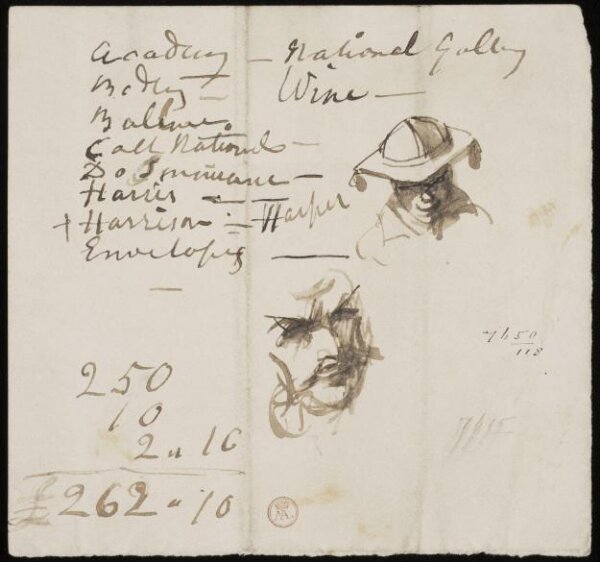 Academy – National Gallery
– Wine –
Call National –
Do Insurance –
Harris –
+ Harrison – Harper
Envelopes —
250
10
2 " 10
£262 " 10
7/6 50
118